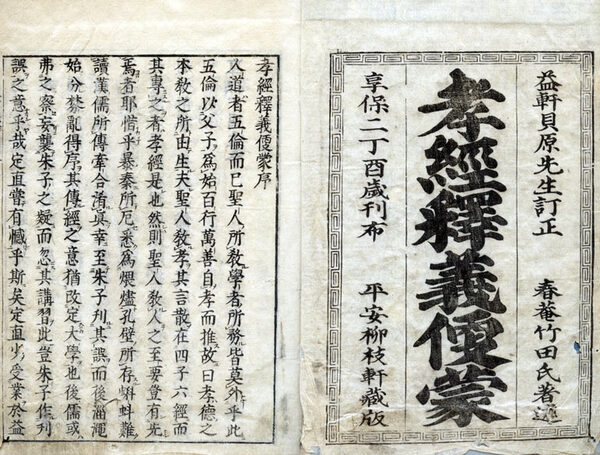 益軒貝原先生訂正 春菴竹田氏著述
孝經釋義便蒙
享保二丁酉歳刊布 平安柳枝軒藏版
孝經釋義便蒙序
人道者五倫而已聖人所教學者所務皆莫外乎此
五倫以父子爲始百行萬善自孝而推故曰孝德之
本教之所由生夫聖人教孝其言散在四子六經而
其專之者孝經是也然則聖人教人之至要豈有先
焉者耶惜乎暴秦所厄悉爲煨燼孔壁所存蝌蚪難
讀漢儒所傳牽合淆眞幸至朱子刋其誤而後涵淹
始分棼亂得序其傳經之意猶改定大學也後儒或
弗之察妄襲朱子之疑而忽其講習此豈朱子作刋
誤之意乎哉定直嘗有憾乎斯矣定直少受業於益